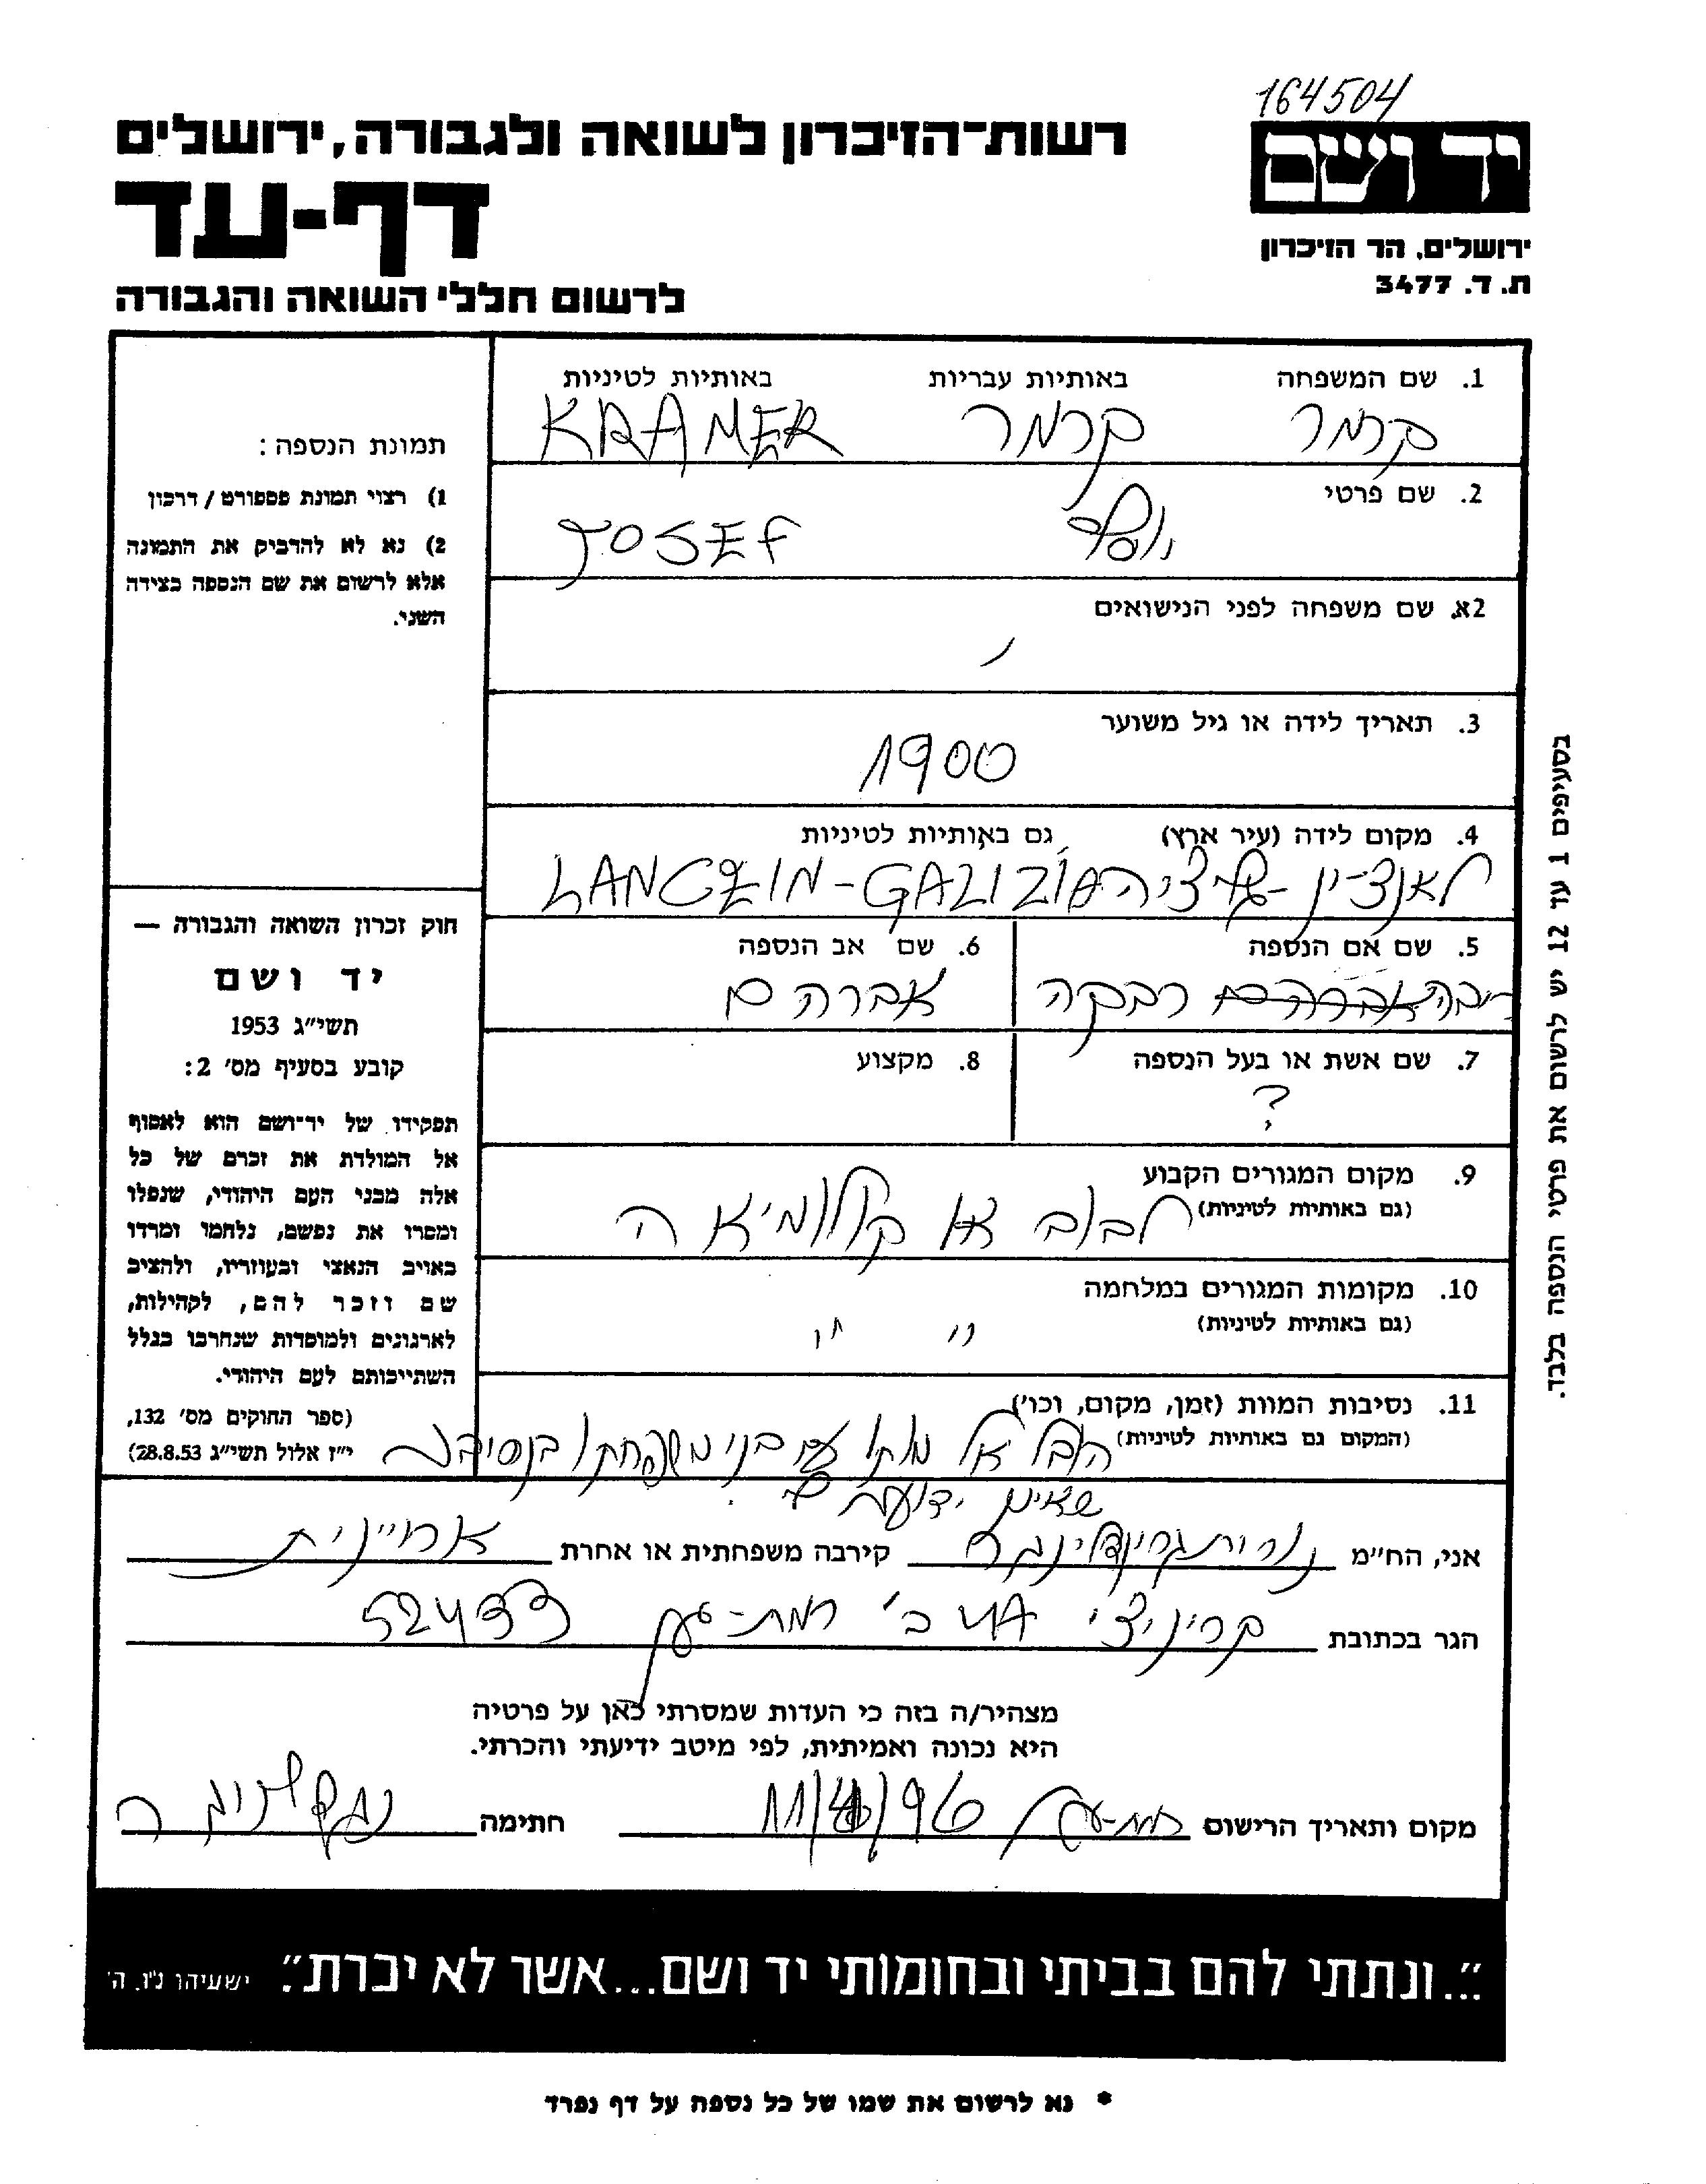 164504
יד ושם
ירושלים, הר הזיכרון
ת. ד. 3477
רשות-הזיכרון לשואה ולגבורה, ירושלים
דף-עד
לרשום חללי השואה והגבורה
תמונת הנספה:
1) רצוי תמונת פספורט / דרכון
2) נא לא להדביק את התמונה
אלא לרשום את שם הנספה בצידה
השני.
חוק זכרון השואה והגבורה —
יד ושם
תשי״ג 1953
קובע בסעיף מס׳ 2:
תפקידו של יד־ושם הוא לאסוף
אל המולדת את זכרם של כל
אלה מבני העם היהודי, שנפלו
ומסרו את נפשם, נלחמו ומרדו
באויב הנאצי ובעוזריו, ולהציב
שם וזכר להם, לקהילות,
לארגונים ולמוסדות שנחרבו בגלל
השתייכותם לעם היהודי.
(ספר החוקים מס׳ 132,
י״ז אלול תשי״ג 28.8.53)
1. שם המשפחה באותיות עבריות באותיות לטיניות
קרמר קרמר KRAMER
2. שם פרטי
יוסף JOSEF
2א. שם משפחה לפני הנישואים
3. תאריך לידה או גיל משוער
1900
4. מקום לידה (עיר ארץ) גם באותיות לטיניות
לאנצ׳ין - גליציה LANCZIN - GALIZIA
5. שם אם הנספה 6. שם אב הנספה
רבקה אברהם
7. שם אשת או בעל הנספה 8. מקצוע
?
9. מקום המגורים הקבוע
(גם באותיות לטיניות)
לבוב או קולומיאה
10. מקומות המגורים במלחמה
(גם באותיות לטיניות)
״ ״
11. נסיבות המוות (זמן, מקום, וכו׳)
(המקום גם באותיות לטיניות)
הובל אל מותו עם בני משפחתו בנסיבות
שאינן ידועות
אני, הח״מ נורית קירבה משפחתית או אחרת אחיינית
הגר בכתובת קריניצי 4A ב׳ רמת-גן 52433
מצהיר/ה בזה כי העדות שמסרתי כאן על פרטיה
היא נכונה ואמיתית, לפי מיטב ידיעתי והכרתי.
מקום ותאריך הרישום רמת-גן 11/4/96 חתימה
״...ונתתי להם בביתי ובחומותי יד ושם...אשר לא יכרת״. ישעיהו נ״ו. ה׳
* נא לרשום את שמו של כל נספה על דף נפרד
בסעיפים 1 עד 12 יש לרשום את פרטי הנספה בלבד.